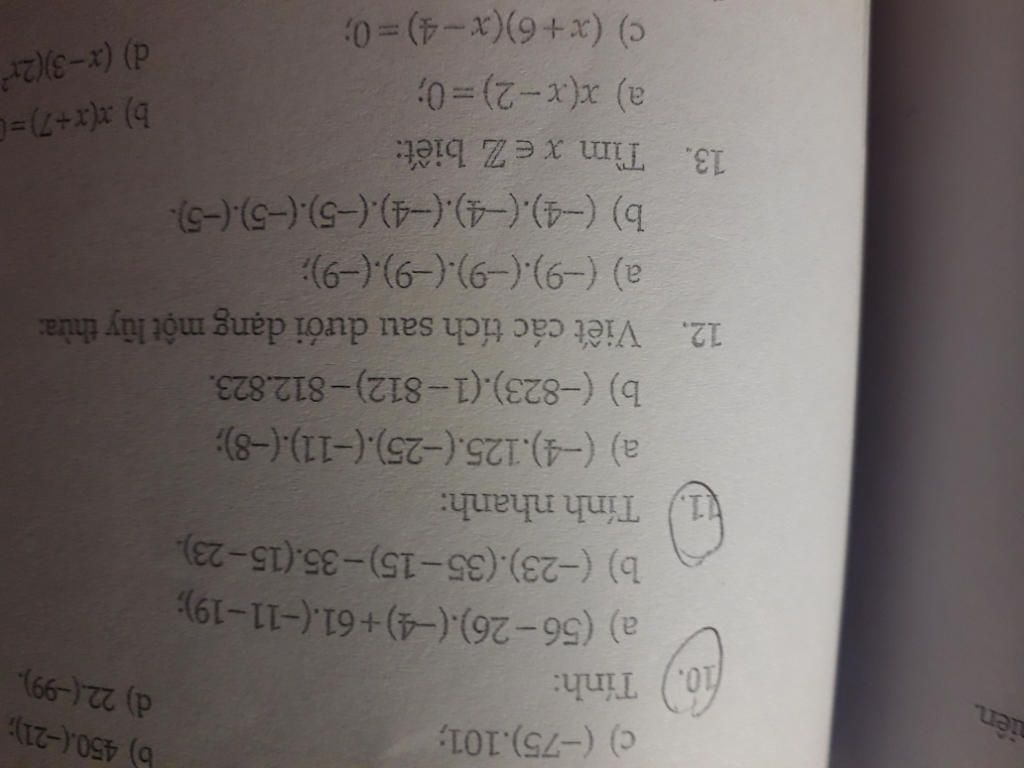 b) 450.(–21);
c) (–75).101;
d) 22.(–99).
10. Tính:
a) (56–26).(–4)+61.(–11–19);
b) (–23).(35–15)–35.(15–23).
11. Tính nhanh:
a) (–4).125.(–25).(–11).(–8);
b) (–823).(1–812)–812.823.
12. Viết các tích sau dưới dạng một lũy thừa:
a) (–9).(–9).(–9).(–9).(–9);
b) (–4).(–4).(–4).(–5).(–5).(–5).
13. Tìm x ∈ ℤ biết:
a) x(x–2)=0;
b) x(x+7)=0
c) (x+6)(x–4)=0;
d) (x–3)(2x²